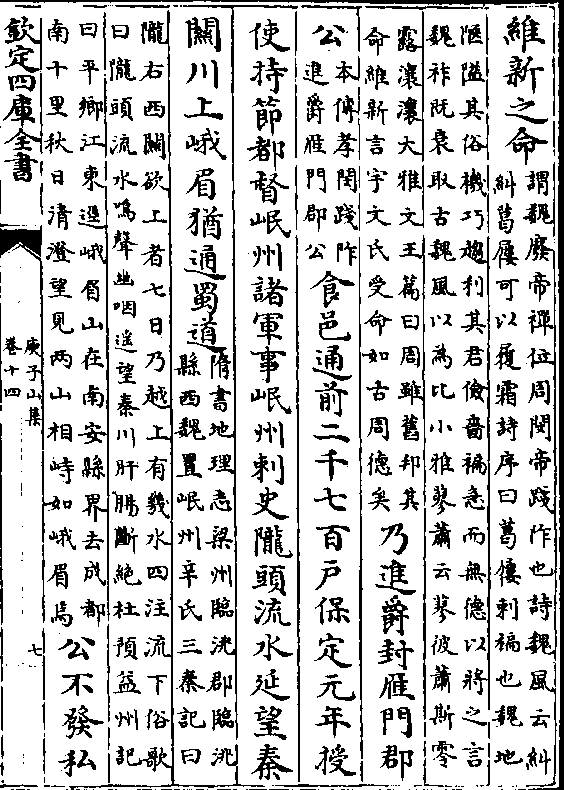 維新之命
謂魏廢帝禪位周閔帝踐阼也詩魏風云糾
糾葛屨可以履霜詩序曰葛屨刺褊也魏地
陿隘其俗機巧趨利其君儉嗇褊急而無德以將之言
魏祚既衰取古魏風以為比小雅蓼蕭云蓼彼蕭斯零
露瀼瀼大雅文王篇曰周雖舊邦其
命維新言宇文氏受命如古周德矣
乃進爵封雁門郡
公
本傳孝閔踐阼
進爵雁門郡公
食邑通前二千七百戸保定元年授
使持節都督岷州諸軍事岷州刺史隴頭流水延望秦
關川上峨眉猶通蜀道
隋書地理志梁州臨洮郡臨洮
縣西魏置岷州辛氏三秦記曰
隴右西關欲上者七日乃越上有幾水四注流下俗歌
曰隴頭流水鳴聲幽咽遥望秦川肝腸斷絶杜預益州記
曰平鄉江東逕峨眉山在南安縣界去成都
南十里秋日清澄望見兩山相峙如峨眉焉
公不發私
欽定四庫全書
庾子山集
卷十四
七